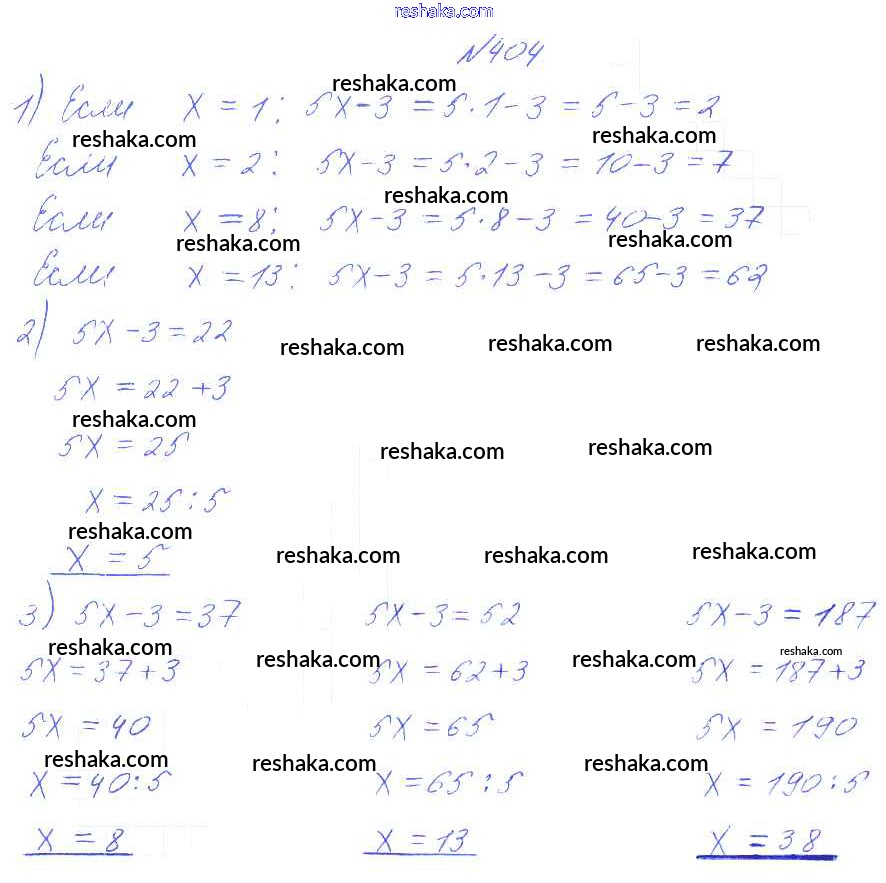 reshaka.com
№404
1) Если x = 1; 5x-3 = 5·1-3 = 5-3 = 2
Если x = 2; 5x-3 = 5·2-3 = 10-3 = 7
Если x = 8; 5x-3 = 5·8-3 = 40-3 = 37
Если x = 13; 5x-3 = 5·13-3 = 65-3 = 62
2) 5x-3=22
5x = 22+3
5x = 25
x = 25:5
x = 5
3) 5x-3=37 5x-3=52 5x-3=187
5x=37+3 5x=62+3 5x=187+3
5x=40 5x=65 5x=190
x=40:5 x=65:5 x=190:5
x=8 x=13 x=38
reshaka.com
reshaka.com reshaka.com
reshaka.com
reshaka.com reshaka.com
reshaka.com reshaka.com reshaka.com
reshaka.com
reshaka.com reshaka.com
reshaka.com
reshaka.com reshaka.com reshaka.com
reshaka.com reshaka.com reshaka.com reshaka.com
reshaka.com reshaka.com reshaka.com